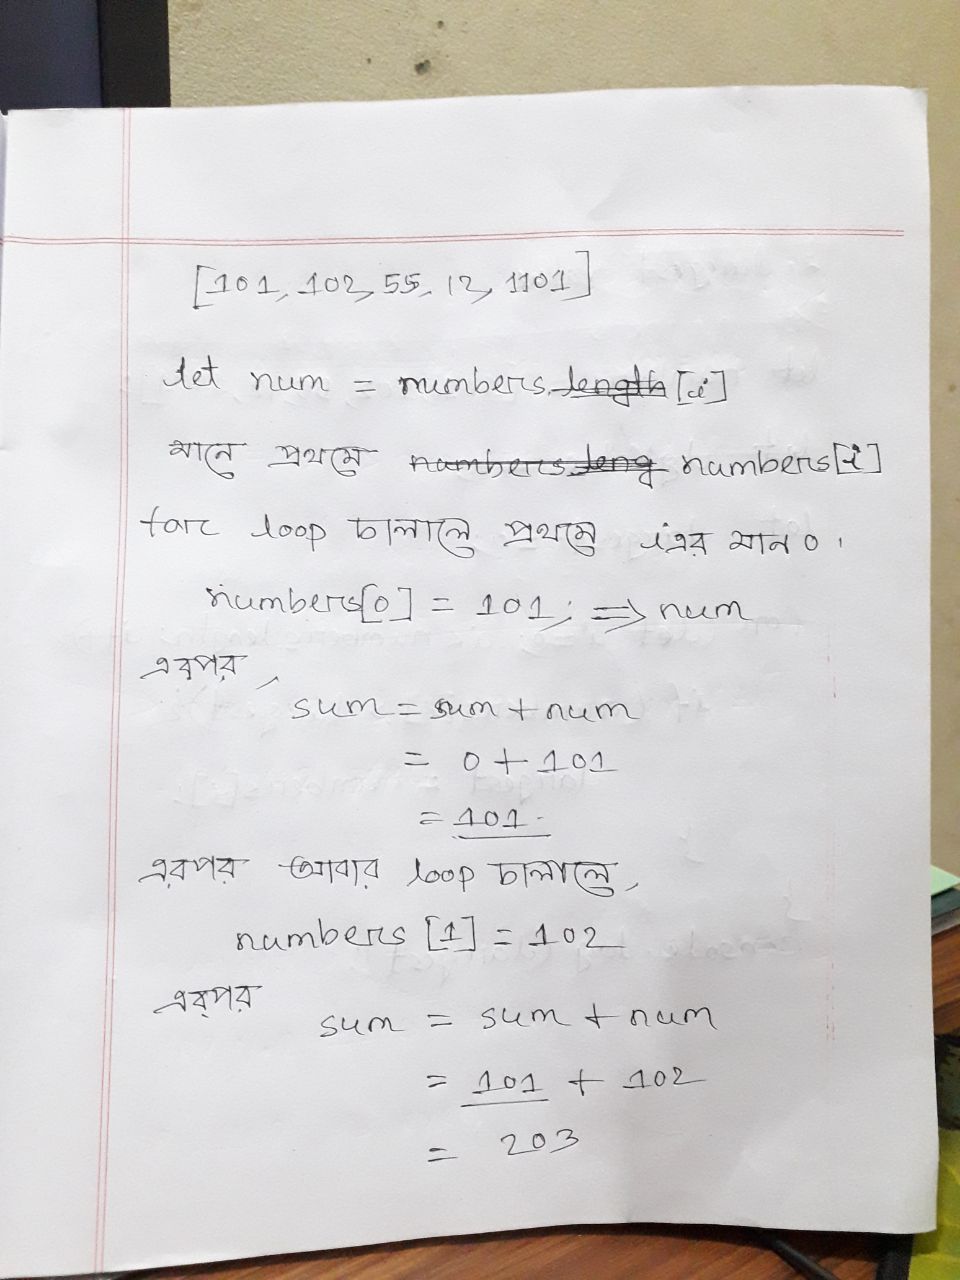 [101, 102, 55, 12, 1101]
let num = numbers.length[i]
মানে প্রথমে numbers.leng numbers[i]
for loop চালালে প্রথমে i এর মান 0।
numbers[0] = 101; => num
এরপর,
sum = sum + num
= 0 + 101
= 101
এরপর আবার loop চালালে,
numbers [1] = 102
এরপর
sum = sum + num
= 101 + 102
= 203